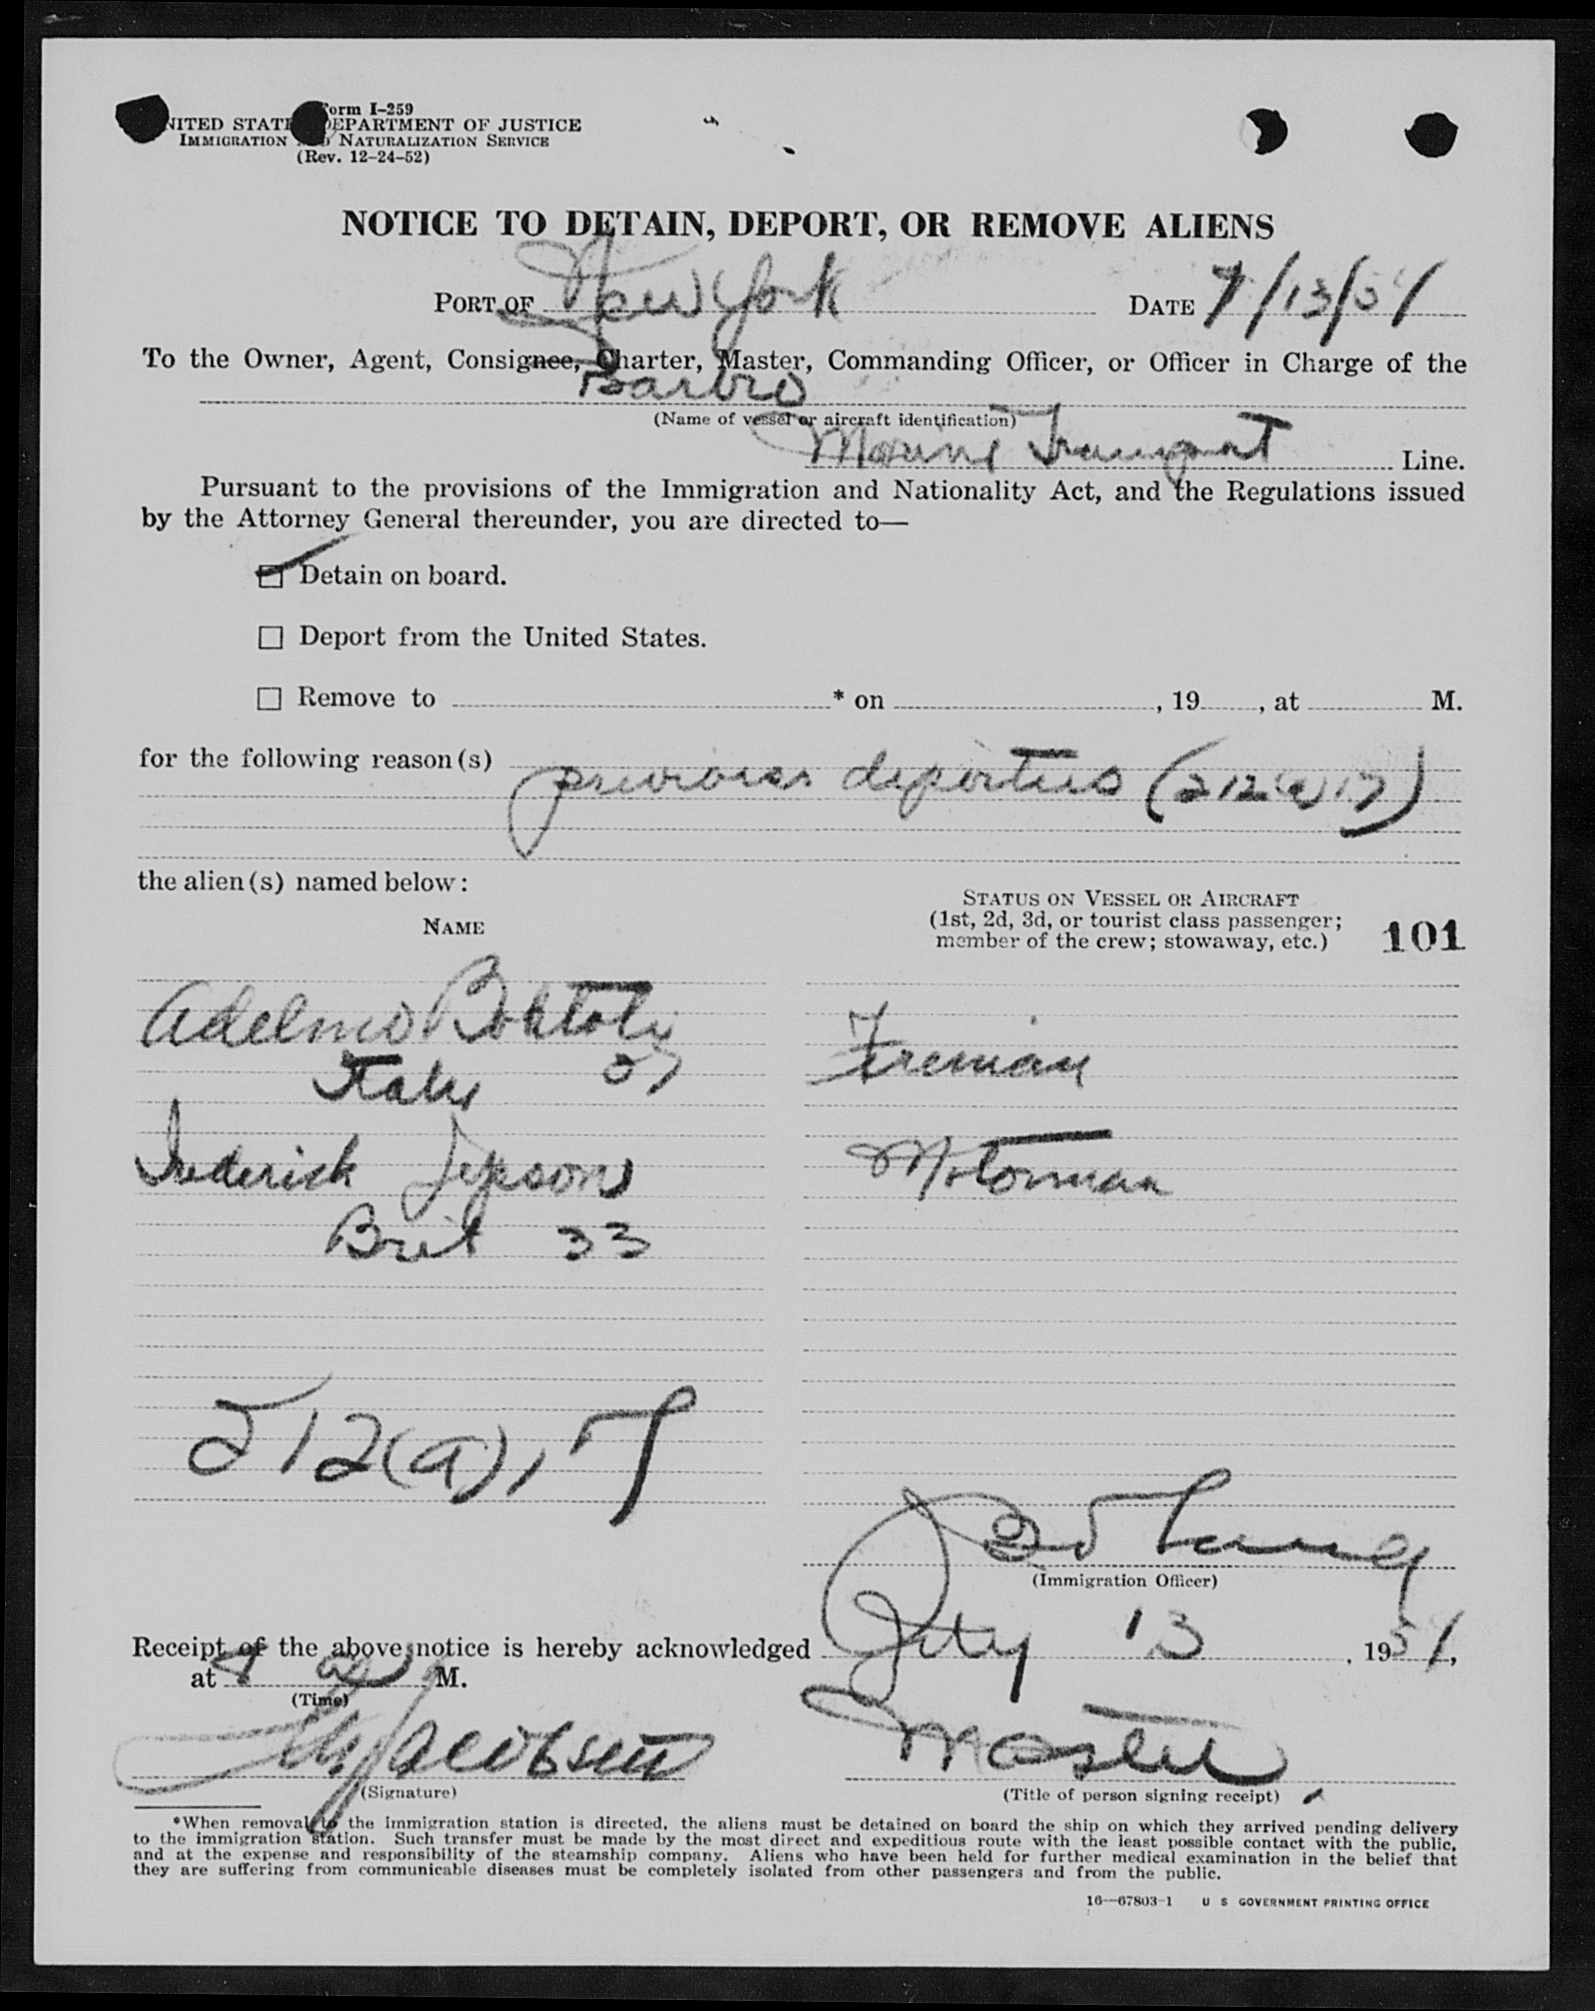 Form I-259
UNITED STATES DEPARTMENT OF JUSTICE
IMMIGRATION AND NATURALIZATION SERVICE
(Rev. 12-24-52)
NOTICE TO DETAIN, DEPORT, OR REMOVE ALIENS
PORT OF New York DATE 7/13/54
To the Owner, Agent, Consignee, Charter, Master, Commanding Officer, or Officer in Charge of the
Barbro
(Name of vessel or aircraft identification)
Marine Transport Line.
Pursuant to the provisions of the Immigration and Nationality Act, and the Regulations issued
by the Attorney General thereunder, you are directed to—
Detain on board.
Deport from the United States.
Remove to * on , 19 , at M.
for the following reason(s) previous deportees (212(a)17)
the alien(s) named below:
NAME
STATUS ON VESSEL OR AIRCRAFT
(1st, 2d, 3d, or tourist class passenger;
member of the crew; stowaway, etc.)
101
Adelmo Fireman
Italy
Frederick Jepson Motorman
Brit 33
212(a),17
(Immigration Officer)
Receipt of the above notice is hereby acknowledged July 13, 1954,
at M.
(Time)
Jacobsen Master
(Signature) (Title of person signing receipt)
*When removal to the immigration station is directed, the aliens must be detained on board the ship on which they arrived pending delivery
to the immigration station. Such transfer must be made by the most direct and expeditious route with the least possible contact with the public,
and at the expense and responsibility of the steamship company. Aliens who have been held for further medical examination in the belief that
they are suffering from communicable diseases must be completely isolated from other passengers and from the public.
16—67803-1 U S GOVERNMENT PRINTING OFFICE